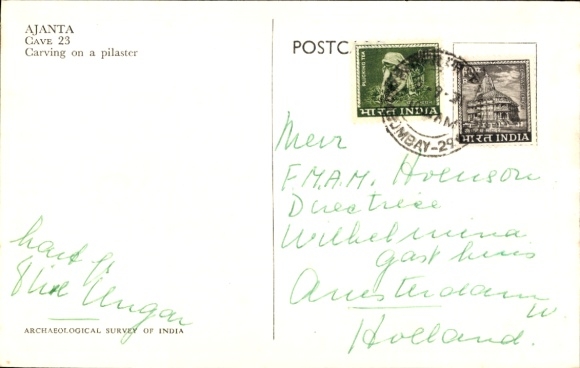 AJANTA
CAVE 23
Carving on a pilaster
POSTC
भारत INDIA
भारत INDIA
BOMBAY-29
Meir
F.M.A.M. Hoenson
Directrice
Wilhelmina
gasthuis
Amsterdam W
Holland.
hart gr
Ungar
ARCHAEOLOGICAL SURVEY OF INDIA